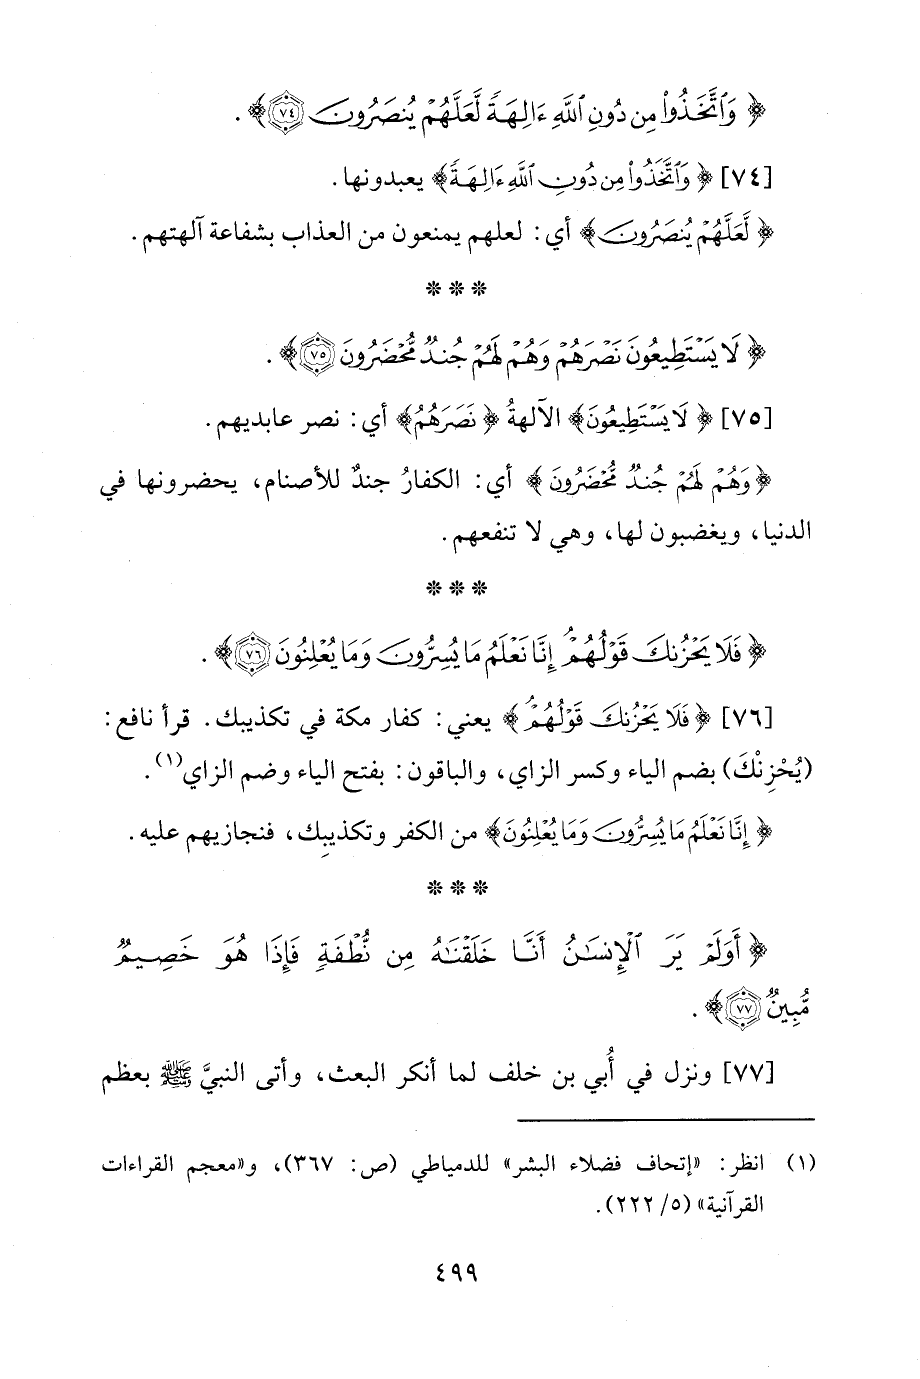 ﴿ وَٱتَّخَذُوا۟ مِن دُونِ ٱللَّهِ ءَالِهَةً لَّعَلَّهُمْ يُنصَرُونَ ٧٤﴾ .
[٧٤] ﴿ وَٱتَّخَذُوا۟ مِن دُونِ ٱللَّهِ ءَالِهَةً﴾ يعبدونها .
﴿ لَّعَلَّهُمْ يُنصَرُونَ﴾ أي : لعلهم يمنعون من العذاب بشفاعة آلهتهم .
* * *
﴿ لَا يَسْتَطِيعُونَ نَصْرَهُمْ وَهُمْ لَهُمْ جُندٌ مُّحْضَرُونَ ٧٥﴾ .
[٧٥] ﴿ لَا يَسْتَطِيعُونَ﴾ الآلهةُ ﴿ نَصْرَهُمْ﴾ أي : نصر عابديهم .
﴿ وَهُمْ لَهُمْ جُندٌ مُّحْضَرُونَ ﴾ أي : الكفارُ جندٌ للأصنام، يحضرونها في
الدنيا، ويغضبون لها، وهي لا تنفعهم .
* * *
﴿ فَلَا يَحْزُنكَ قَوْلُهُمْ ۘ إِنَّا نَعْلَمُ مَا يُسِرُّونَ وَمَا يُعْلِنُونَ ٧٦﴾ .
[٧٦] ﴿ فَلَا يَحْزُنكَ قَوْلُهُمْ ۘ﴾ يعني : كفار مكة في تكذيبك . قرأ نافع :
(يُحْزِنْكَ) بضم الياء وكسر الزاي، والباقون : بفتح الياء وضم الزاي(١) .
﴿ إِنَّا نَعْلَمُ مَا يُسِرُّونَ وَمَا يُعْلِنُونَ﴾ من الكفر وتكذيبِك، فنجازيهم عليه .
* * *
﴿ أَوَلَمْ يَرَ ٱلْإِنسَـٰنُ أَنَّا خَلَقْنَـٰهُ مِن نُّطْفَةٍ فَإِذَا هُوَ خَصِيمٌ
مُّبِينٌ ٧٧﴾ .
[٧٧] ونزل في أُبي بن خلف لما أنكر البعث، وأتى النبيَّ ﷺ بعظم
(١) انظر : «إتحاف فضلاء البشر» للدمياطي (ص : ٣٦٧)، و«معجم القراءات
القرآنية» (٥/ ٢٢٢) .
٤٩٩